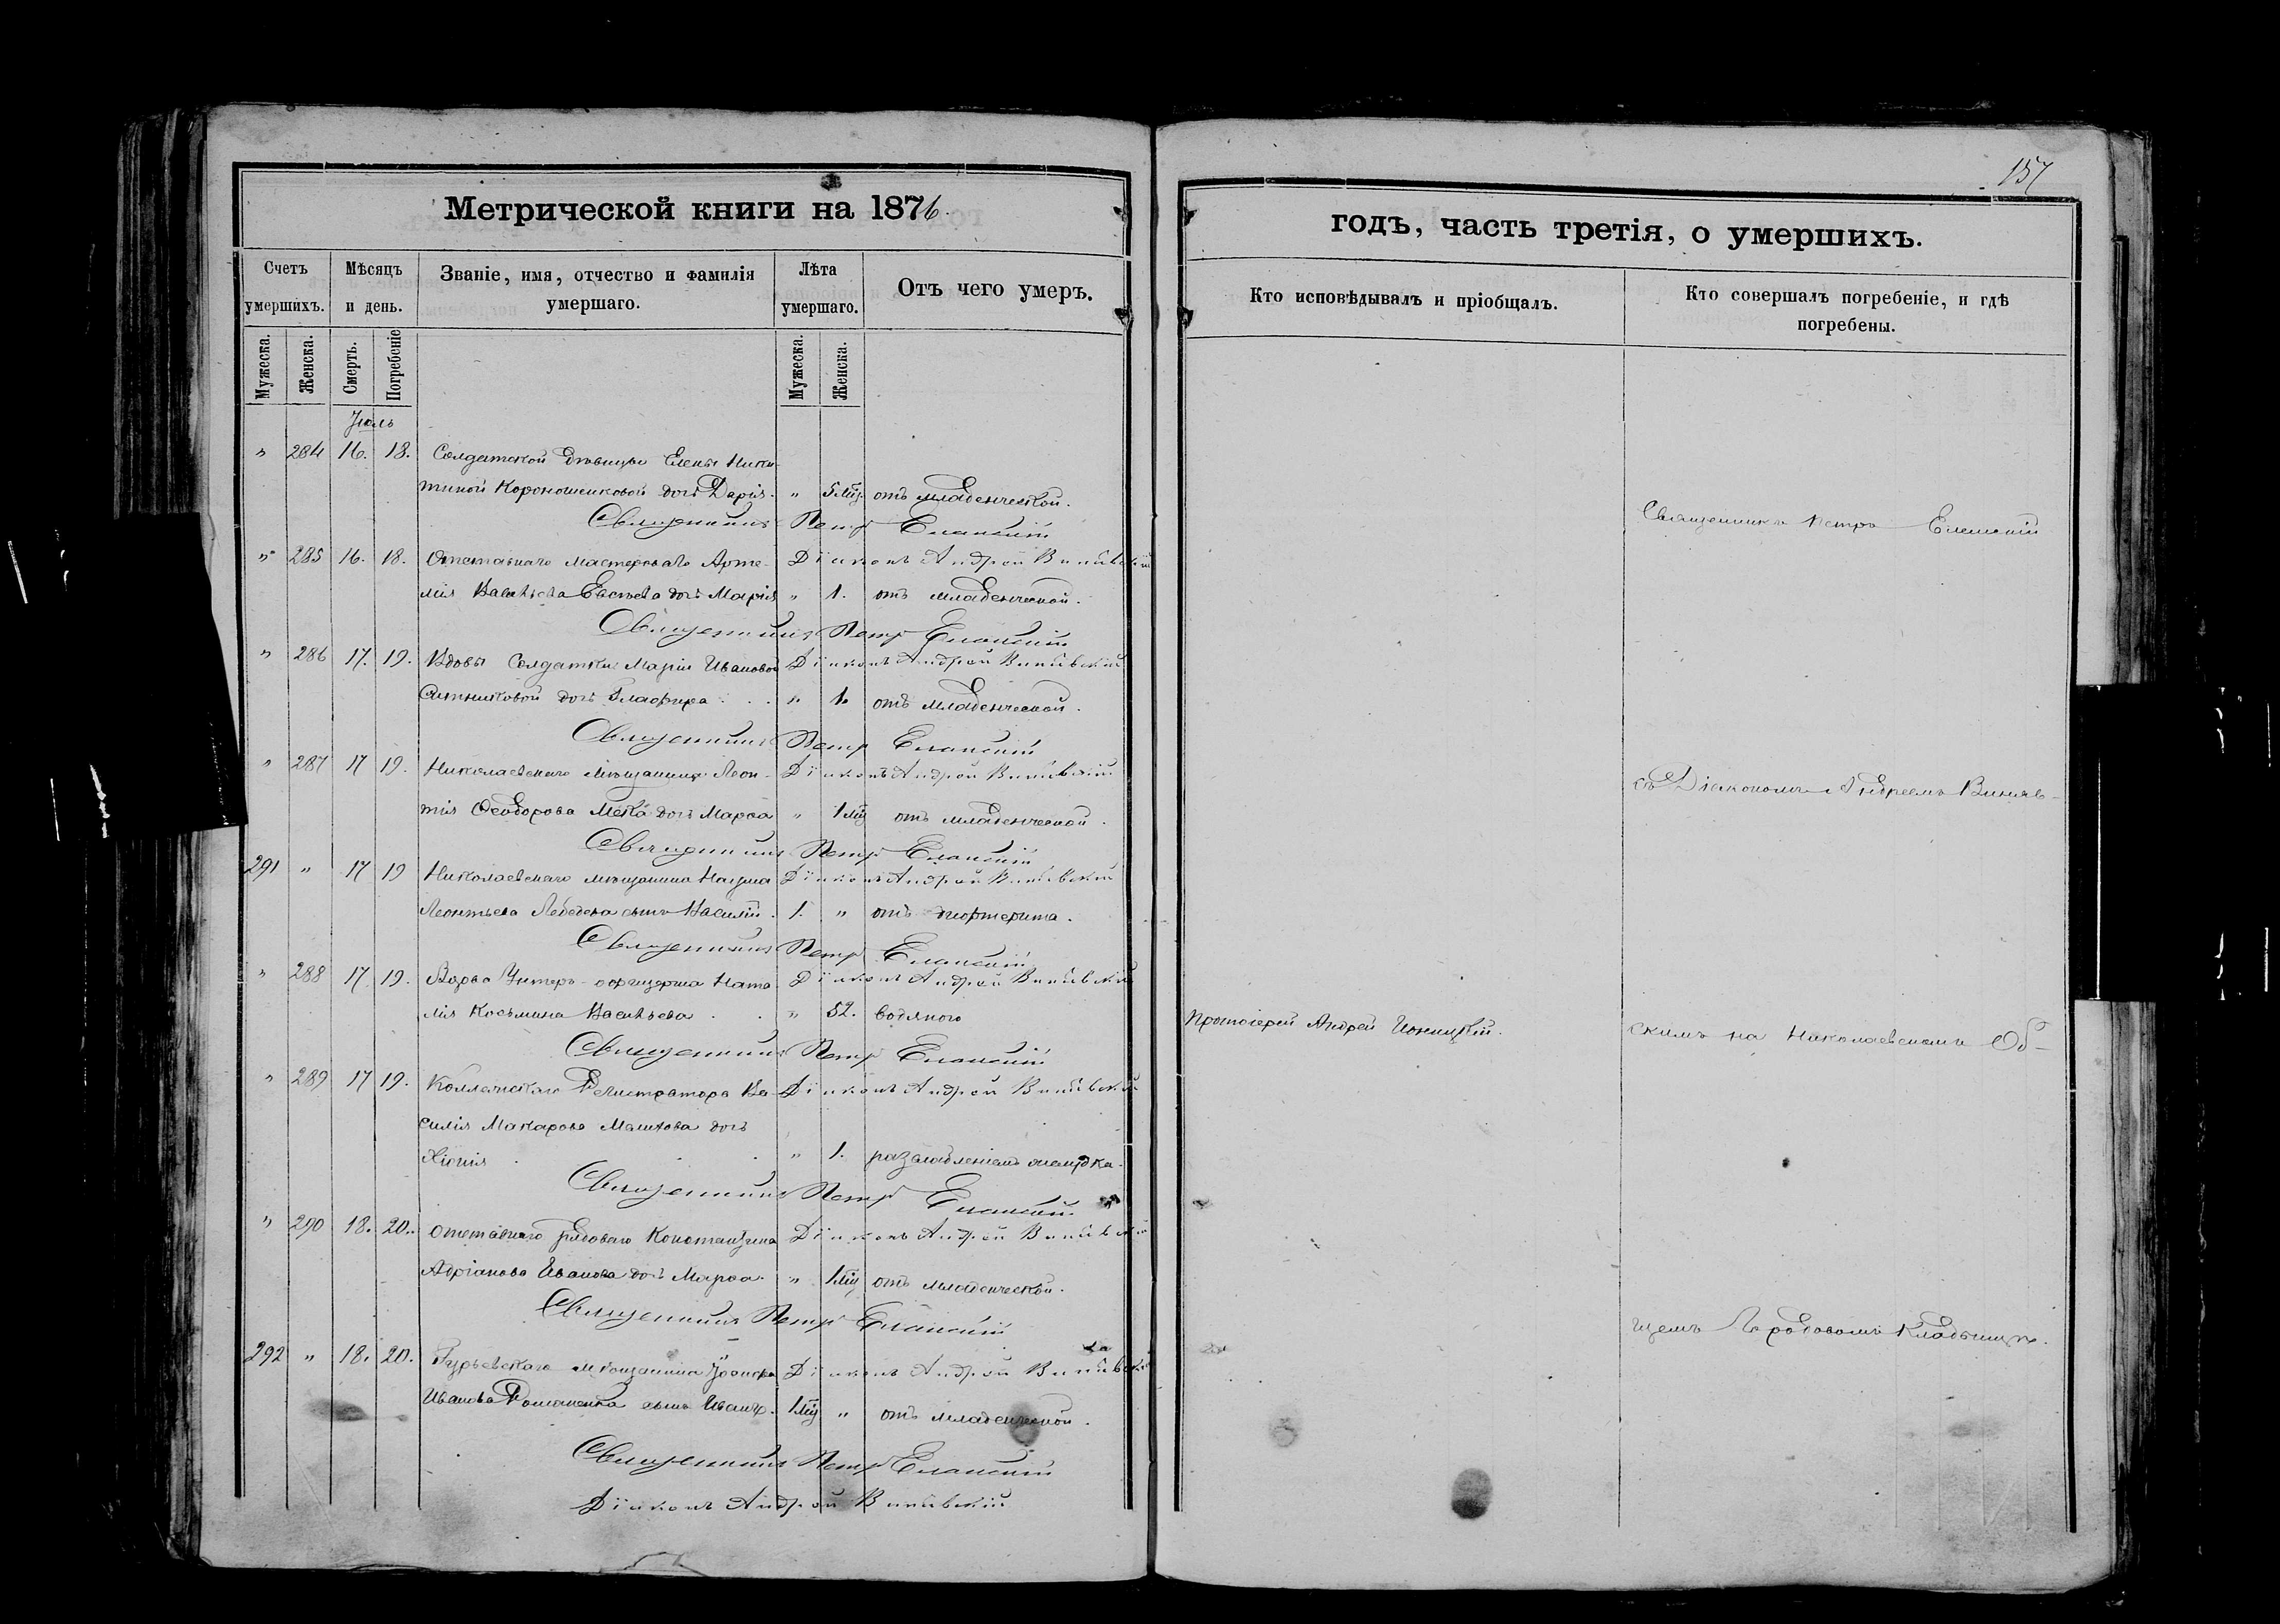 157
Метрической книги на 1876.
годъ, часть третія, о умершихъ.
Счетъ умершихъ.
Мѣсяцъ и день.
Званіе, имя, отчество и фамилія умершаго.
Лѣта умершаго.
Отъ чего умеръ.
Кто исповѣдывалъ и пріобщалъ.
Кто совершалъ погребеніе, и гдѣ погребены.
Мужеска. Женска. Смерть. Погребеніе Мужеска. Женска.
Іюль
" 284 16. 18. Солдатской дѣвицы Елены Ники-
тиной дочь Дарія. " 5 мц. отъ младенческой.
Священникъ Петръ Еланскій
Діаконъ Андрей
" 285 16. 18. Отставнаго мастероваго Арте-
мія Васильева дочь Марія " 1. отъ младенческой.
Священникъ Петръ Еланскій
Діаконъ Андрей
" 286 17. 19. Вдовы Солдатки Маріи Ивановой
Ситниковой дочь Глафира " 1. отъ младенческой.
Священникъ Петръ Еланскій
Діаконъ Андрей
" 287 17 19. Николаевскаго мѣщанина Леон-
тія Ѳеодорова дочь Марѳа " 1 мц отъ младенческой.
Священникъ Петръ Еланскій
Діаконъ Андрей
291 " 17 19 Николаевскаго мѣщанина Наума
Леонтьева Лебедева сынъ Василій. 1. " отъ дифтерита.
Священникъ Петръ Еланскій
Діаконъ Андрей
" 288 17 19. Вдова Унтеръ-офицерша Ната-
лія Косьмина Васильева " 52. водяного
Священникъ Петръ Еланскій
Діаконъ Андрей
" 289 17 19. Коллежскаго Регистратора Ва-
силія Макарова дочь
Хіонія " 1. желудка.
Священникъ Петръ Еланскій
Діаконъ Андрей
" 290 18. 20. Отставнаго рядоваго Константина
Адріанова Иванова дочь Марѳа. " 1 мц отъ младенческой.
Священникъ Петръ Еланскій
Діаконъ Андрей
292 " 18. 20. Гурьевскаго мѣщанина
Иванова Романенка сынъ Иванъ. 1 мц " отъ младенческой.
Священникъ Петръ Еланскій
Діаконъ Андрей
Священникъ Петръ Еланскій
съ Діакономъ Андреемъ
Протоіерей Андрей
скимъ на Николаевскомъ Об-
щемъ Городовомъ Кладбищѣ.